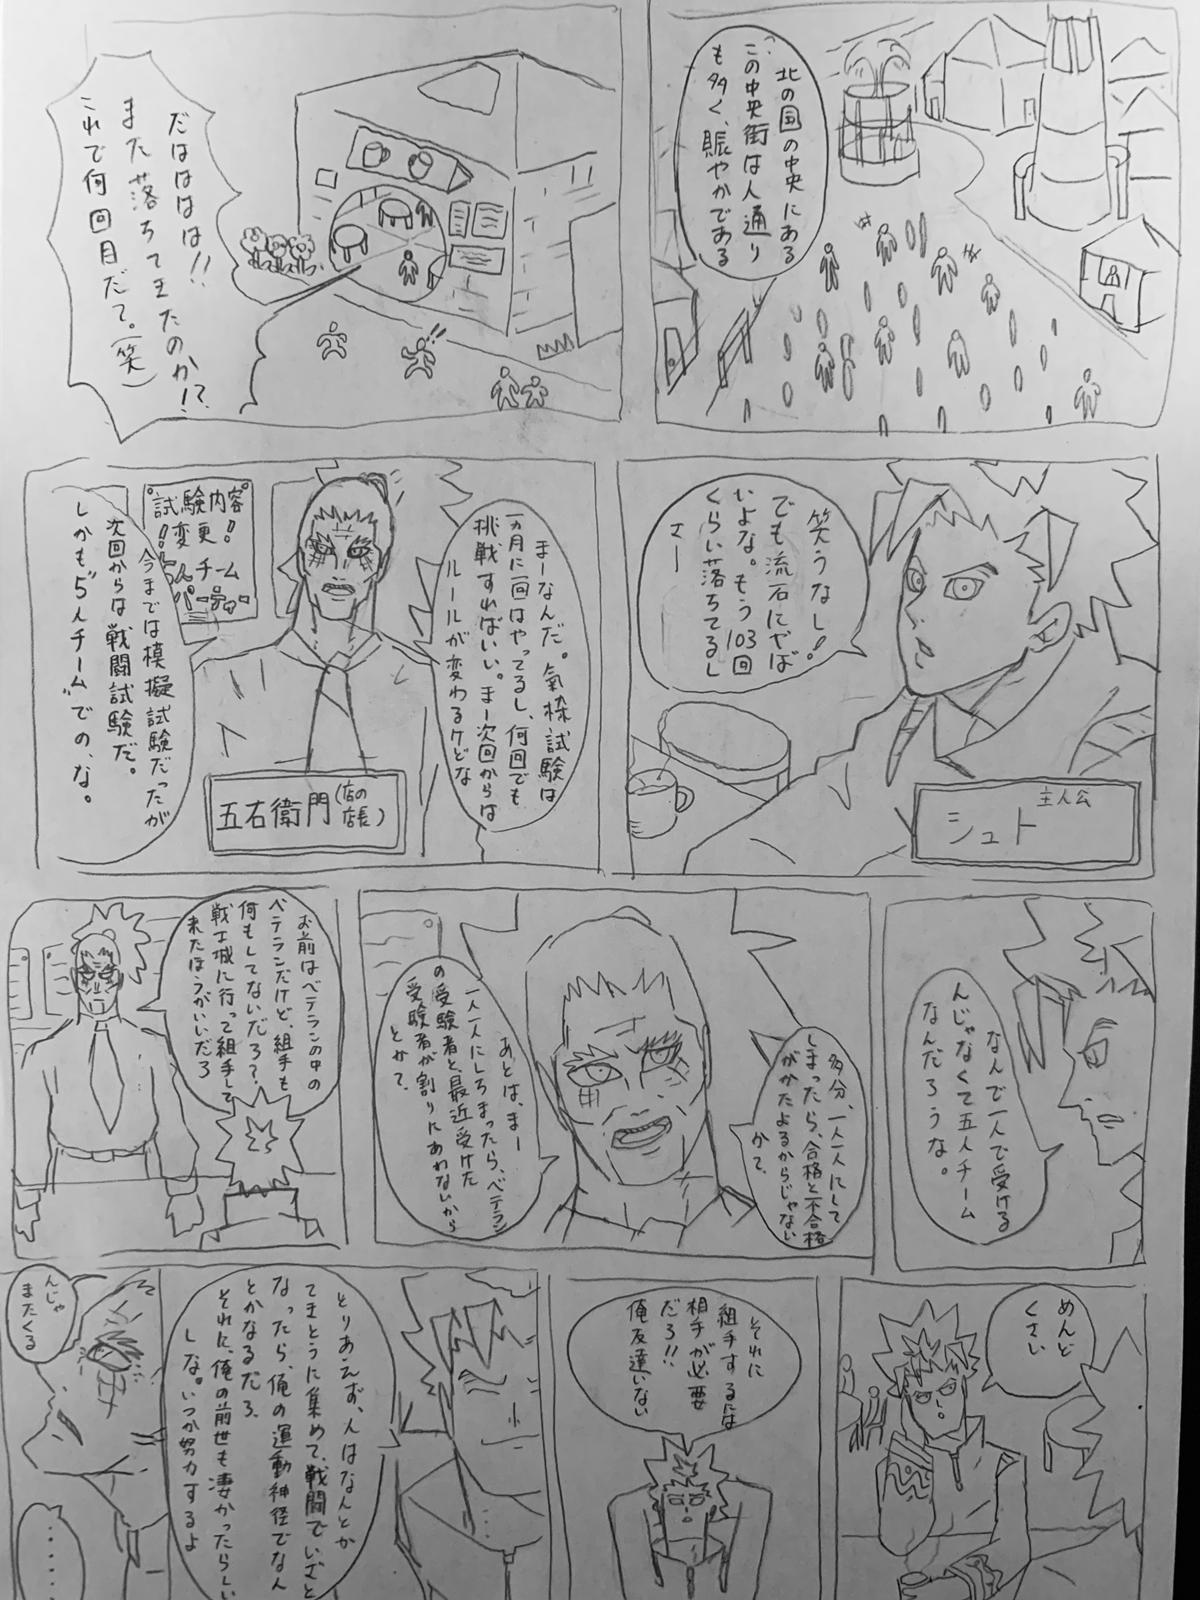 北の国の中央にある
この中央街は人通り
も多く、賑やかである
だははは!!
また落ちてきたのか!?
これで何回目だて。(笑)
笑うなし!
でも流石にやば
いよな。もう103回
くらい落ちてるし
さー
主人公
シュト
まーなんだ。氣検試験は
一ヵ月に一回はやってるし、何回でも
挑戦すればいい。まー次回からは
ルールが変わるけどな
試験内容
変更!!
5人チーム
パーティー
五右衛門(店の店長)
今までは模擬試験だったが
次回からは戦闘試験だ。
しかも“5人チーム”での、な。
なんで一人で受ける
んじゃなくて五人チーム
なんだろうな。
多分、一人一人にして
しまったら、合格と不合格
がかたよるからじゃない
かて、
あとは、まー
一人一人にしちまったら、ベテラン
の受験者と、最近受けた
受験者が割りにあわないから
とかて、
お前はベテランの中の
ベテランだけど、組手も
何もしてないだろ?
戦士城に行って組手して
来たほうがいいだろ
めんど
くさい
それに
組手するには
相手が必要
だろ!!
俺友達いない
とりあえず、人はなんとか
てきとうに集めて、戦闘でいざと
なったら、俺の運動神経でなん
とかなるだろ、
それに、俺の前世も凄かったらしい
しな。いつか努力するよ
んじゃ
またくる
……